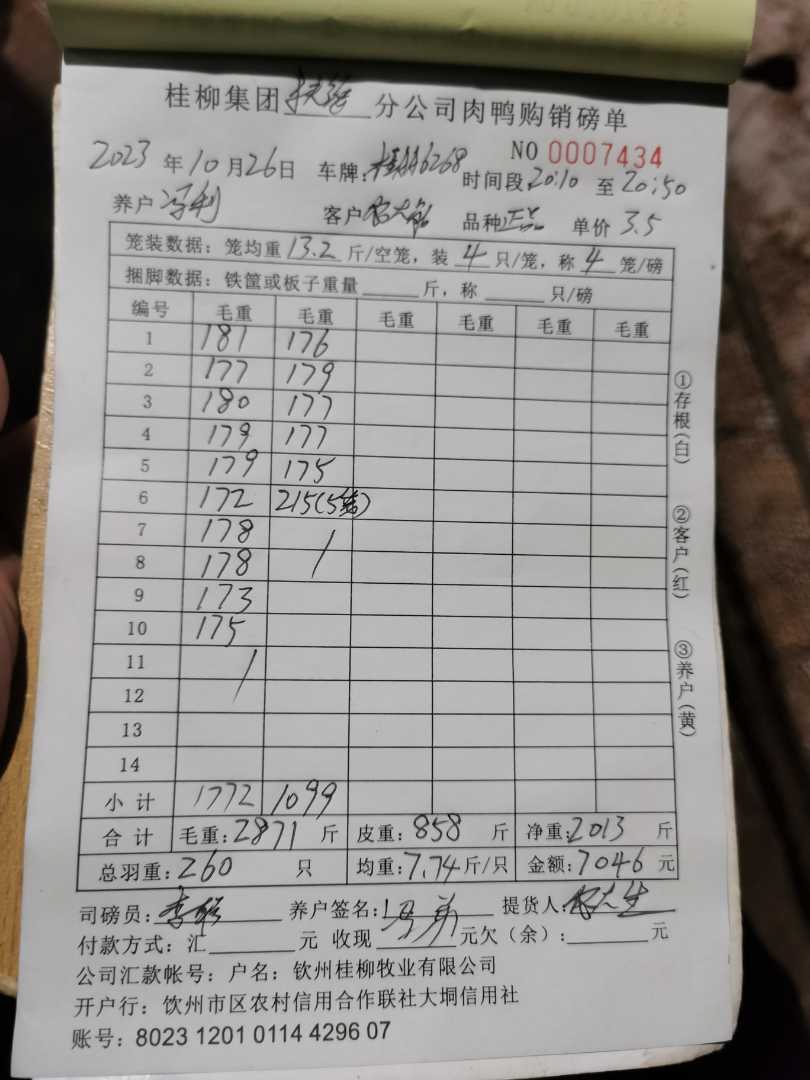 桂柳集团 分公司肉鸭购销磅单
NO 0007434
2023 年 10 月 26 日 车牌:桂AA6268 时间段 20:10 至 20:50
养户 冯利 客户 品种 正品 单价 3.5
笼装数据：笼均重 13.2 斤/空笼，装 4 只/笼，称 4 笼/磅
捆脚数据：铁筐或板子重量 斤，称 只/磅
编号 毛重 毛重 毛重 毛重 毛重 毛重
1 181 176
2 177 179
3 180 177
4 179 177
5 179 175
6 172 215(5笼)
7 178 /
8 178
9 173
10 175
11 /
12
13
14
小计 1772 1099
合计 毛重:2871 斤 皮重:858 斤 净重:2013 斤
总羽重:260 只 均重:7.74 斤/只 金额:7046 元
司磅员: 养户签名: 提货人:
付款方式：汇 元 收现 元欠（余）: 元
公司汇款帐号：户名：钦州桂柳牧业有限公司
开户行：饮州市区农村信用合作联社大垌信用社
账号：8023 1201 0114 4296 07
①存根(白)
②客户(红)
③养户(黄)